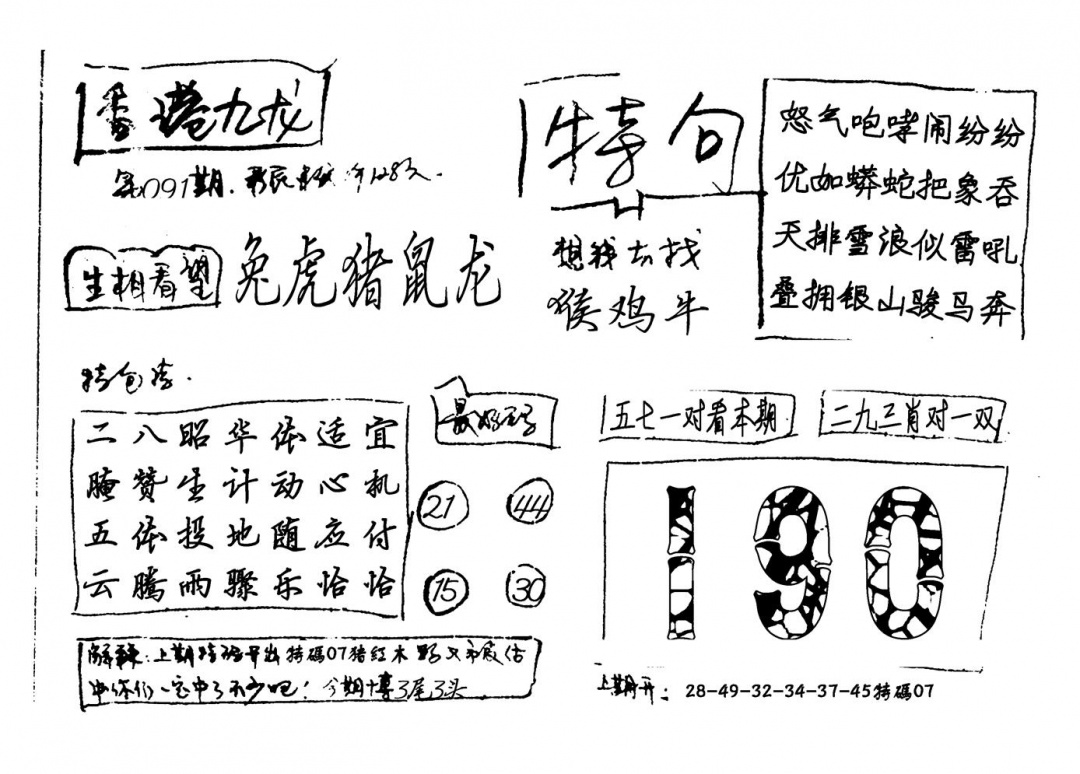 香港九龙
第091期.
生相看望
兔虎猪鼠龙
特句
想我去找
猴鸡牛
怒气咆哮闹纷纷
优如蟒蛇把象吞
天排雪浪似雷吼
叠拥银山骏马奔
二八昭华依适宜
腌赞生计动心机
五体投地随应付
云腾雨骤乐恰恰
21 44
15 30
五七一对看本期
二九三肖对一双
190
上期特码开出特碼07猪红木
中你们一定中了不少吧! 今期博3尾3头
上期开: 28-49-32-34-37-45特碼07